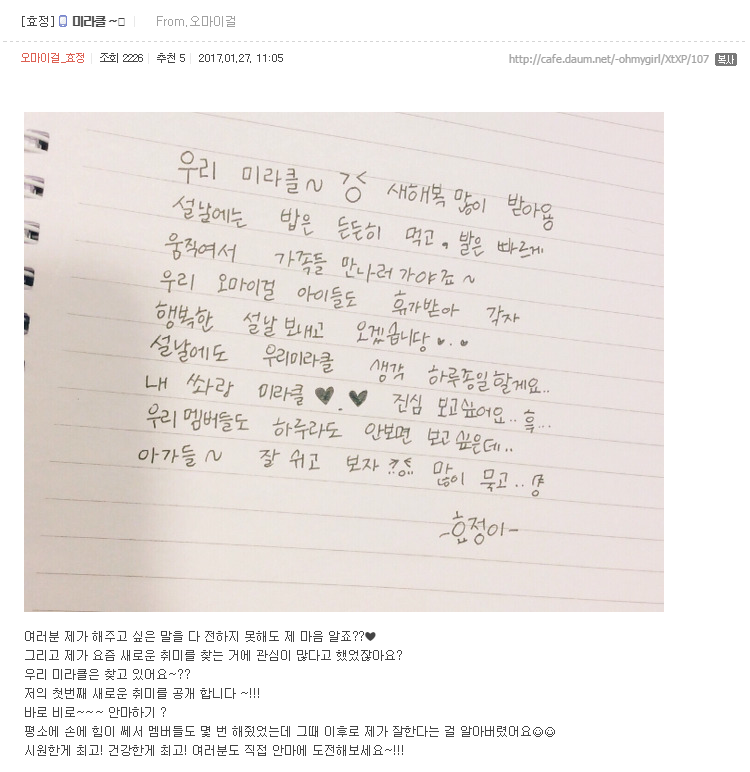 [효정] 미라클 ~ From.오마이걸
오마이걸_효정 조회 2226 추천 5 2017.01.27. 11:05 http://cafe.daum.net/-ohmygirl/XtXP/107 복사
우리 미라클~ 걍 새해복 많이 받아용
설날에는 밥은 든든히 먹고, 발은 빠르게
움직여서 가족들 만나러 가야죠~
우리 오마이걸 아이들도 휴가받아 각자
행복한 설날 보내고 오겠습니당♥.♥
설날에도 우리미라클 생각 하루종일 할게요..
내 쏴랑 미라클 ♥.♥ 진심 보고싶어요.. 흑...
우리 멤버들도 하루라도 안보면 보고싶은데..
아가들~ 잘 쉬고 보자 많이 묵고..
-효정이-
여러분 제가 해주고 싶은 말을 다 전하지 못해도 제 마음 알죠??♥
그리고 제가 요즘 새로운 취미를 찾는 거에 관심이 많다고 했었잖아요?
우리 미라클은 찾고 있어요~??
저의 첫번째 새로운 취미를 공개 합니다 ~!!!
바로 비로~~~ 안마하기 ?
평소에 손에 힘이 쎄서 멤버들도 몇 번 해줬었는데 그때 이후로 제가 잘한다는 걸 알아버렸어요☺☺
시원한게 최고! 건강한게 최고! 여러분도 직접 안마에 도전해보세요~!!!